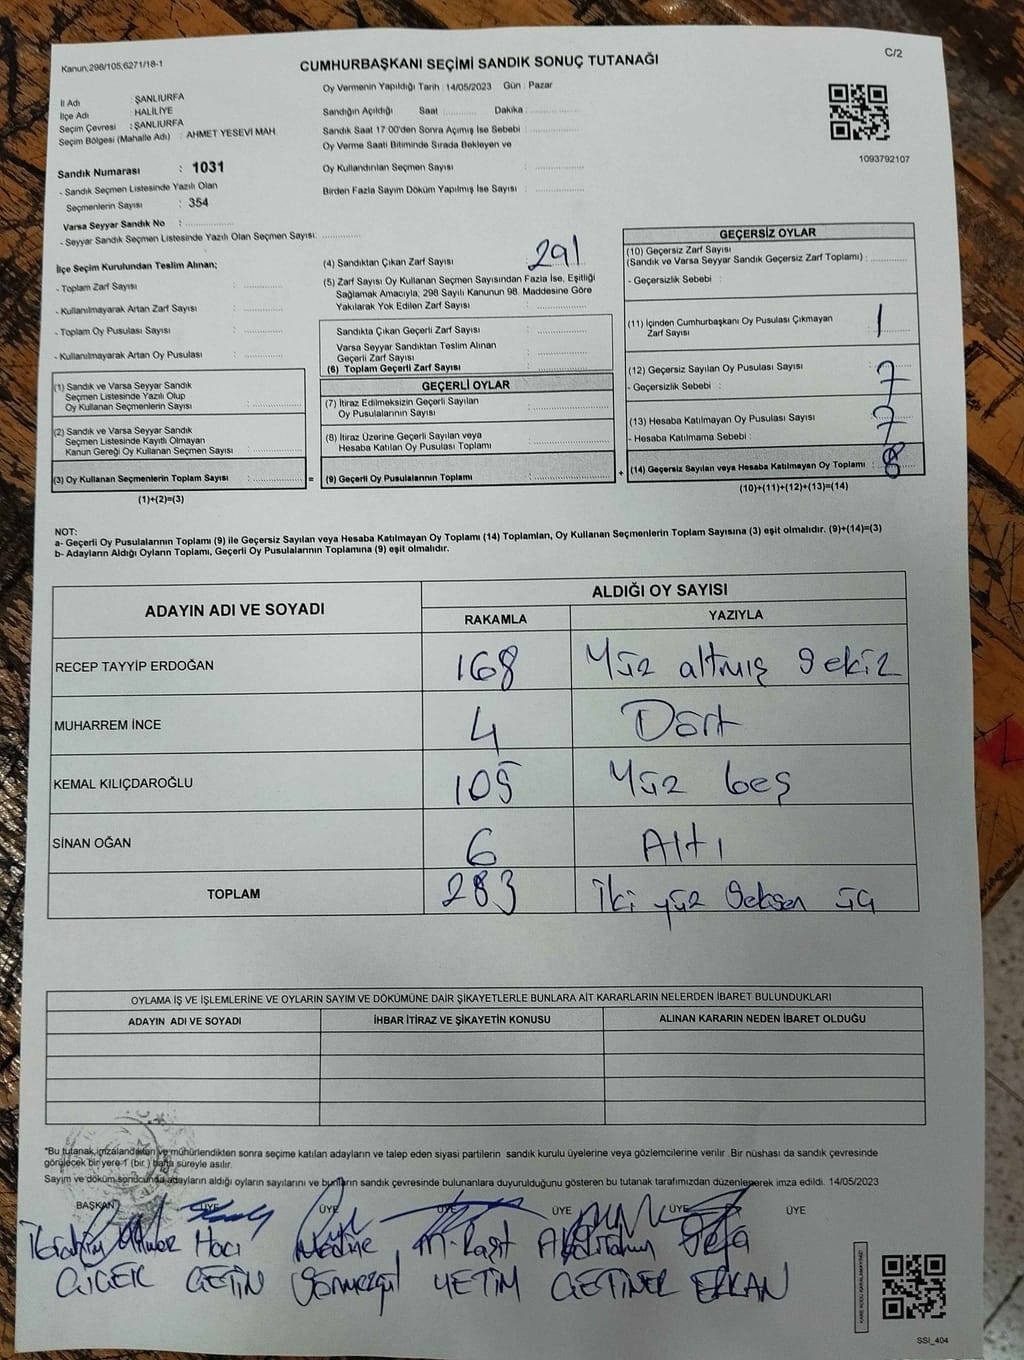 Kanun;298/105;6271/18-1
CUMHURBAŞKANI SEÇİMİ SANDIK SONUÇ TUTANAĞI
C/2
İl Adı : ŞANLIURFA
İlçe Adı : HALİLİYE
Seçim Çevresi : ŞANLIURFA
Seçim Bölgesi (Mahalle Adı) : AHMET YESEVİ MAH.
Sandık Numarası : 1031
- Sandık Seçmen Listesinde Yazılı Olan
Seçmenlerin Sayısı : 354
Varsa Seyyar Sandık No :
- Seyyar Sandık Seçmen Listesinde Yazılı Olan Seçmen Sayısı:
Oy Vermenin Yapıldığı Tarih : 14/05/2023 Gün : Pazar
Sandığın Açıldığı Saat : Dakika :
Sandık Saat 17:00'den Sonra Açımış İse Sebebi :
Oy Verme Saati Bitiminde Sırada Bekleyen ve
Oy Kullandırılan Seçmen Sayısı :
Birden Fazla Sayım Döküm Yapılmış İse Sayısı :
1093792107
İlçe Seçim Kurulundan Teslim Alınan;
- Toplam Zarf Sayısı :
- Kullanılmayarak Artan Zarf Sayısı :
- Toplam Oy Pusulası Sayısı :
- Kullanılmayarak Artan Oy Pusulası :
(1) Sandık ve Varsa Seyyar Sandık
Seçmen Listesinde Yazılı Olup
Oy Kullanan Seçmenlerin Sayısı :
(2) Sandık ve Varsa Seyyar Sandık
Seçmen Listesinde Kayıtlı Olmayan
Kanun Gereği Oy Kullanan Seçmen Sayısı :
(3) Oy Kullanan Seçmenlerin Toplam Sayısı : =
(1)+(2)=(3)
(4) Sandıktan Çıkan Zarf Sayısı : 291
(5) Zarf Sayısı Oy Kullanan Seçmen Sayısından Fazla İse, Eşitliği
Sağlamak Amacıyla; 298 Sayılı Kanunun 98. Maddesine Göre
Yakılarak Yok Edilen Zarf Sayısı :
Sandıkta Çıkan Geçerli Zarf Sayısı :
Varsa Seyyar Sandıktan Teslim Alınan
Geçerli Zarf Sayısı :
(6) Toplam Geçerli Zarf Sayısı :
GEÇERLİ OYLAR
(7) İtiraz Edilmeksizin Geçerli Sayılan
Oy Pusulalarının Sayısı :
(8) İtiraz Üzerine Geçerli Sayılan veya
Hesaba Katılan Oy Pusulası Toplamı :
(9) Geçerli Oy Pusulalarının Toplamı : +
GEÇERSİZ OYLAR
(10) Geçersiz Zarf Sayısı
(Sandık ve Varsa Seyyar Sandık Geçersiz Zarf Toplamı) :
- Geçersizlik Sebebi :
(11) İçinden Cumhurbaşkanı Oy Pusulası Çıkmayan
Zarf Sayısı : 1
(12) Geçersiz Sayılan Oy Pusulası Sayısı : 7
- Geçersizlik Sebebi :
(13) Hesaba Katılmayan Oy Pusulası Sayısı : 7
- Hesaba Katılmama Sebebi :
(14) Geçersiz Sayılan veya Hesaba Katılmayan Oy Toplamı : 8
(10)+(11)+(12)+(13)=(14)
NOT:
a- Geçerli Oy Pusulalarının Toplamı (9) ile Geçersiz Sayılan veya Hesaba Katılmayan Oy Toplamı (14) Toplamları, Oy Kullanan Seçmenlerin Toplam Sayısına (3) eşit olmalıdır. (9)+(14)=(3)
b- Adayların Aldığı Oyların Toplamı, Geçerli Oy Pusulalarının Toplamına (9) eşit olmalıdır.
ADAYIN ADI VE SOYADI ALDIĞI OY SAYISI
RAKAMLA YAZIYLA
RECEP TAYYİP ERDOĞAN 168 Yüz altmış sekiz
MUHARREM İNCE 4 Dört
KEMAL KILIÇDAROĞLU 105 Yüz beş
SİNAN OĞAN 6 Altı
TOPLAM 283 İki yüz seksen üç
OYLAMA İŞ VE İŞLEMLERİNE VE OYLARIN SAYIM VE DÖKÜMÜNE DAİR ŞİKAYETLERLE BUNLARA AİT KARARLARIN NELERDEN İBARET BULUNDUKLARI
ADAYIN ADI VE SOYADI İHBAR İTİRAZ VE ŞİKAYETİN KONUSU ALINAN KARARIN NEDEN İBARET OLDUĞU
*Bu tutanak imzalandıktan ve mühürlendikten sonra seçime katılan adayların ve talep eden siyasi partilerin sandık kurulu üyelerine veya gözlemcilerine verilir. Bir nüshası da sandık çevresinde
görülecek bir yere 1 (bir) hafta süreyle asılır.
Sayım ve döküm sonucunda adayların aldığı oyların sayılarını ve bunların sandık çevresinde bulunanlara duyurulduğunu gösteren bu tutanak tarafımızdan düzenlenerek imza edildi. 14/05/2023
BAŞKAN ÜYE ÜYE ÜYE ÜYE ÜYE ÜYE
İbrahim Hacı Nedime M. Raşit Abdurrahman Sefa
ÇİÇEK ÇETİN YETİM ÇETİNER ERKAN
KARE KODU KARALAMAYINIZ!
SSI_404